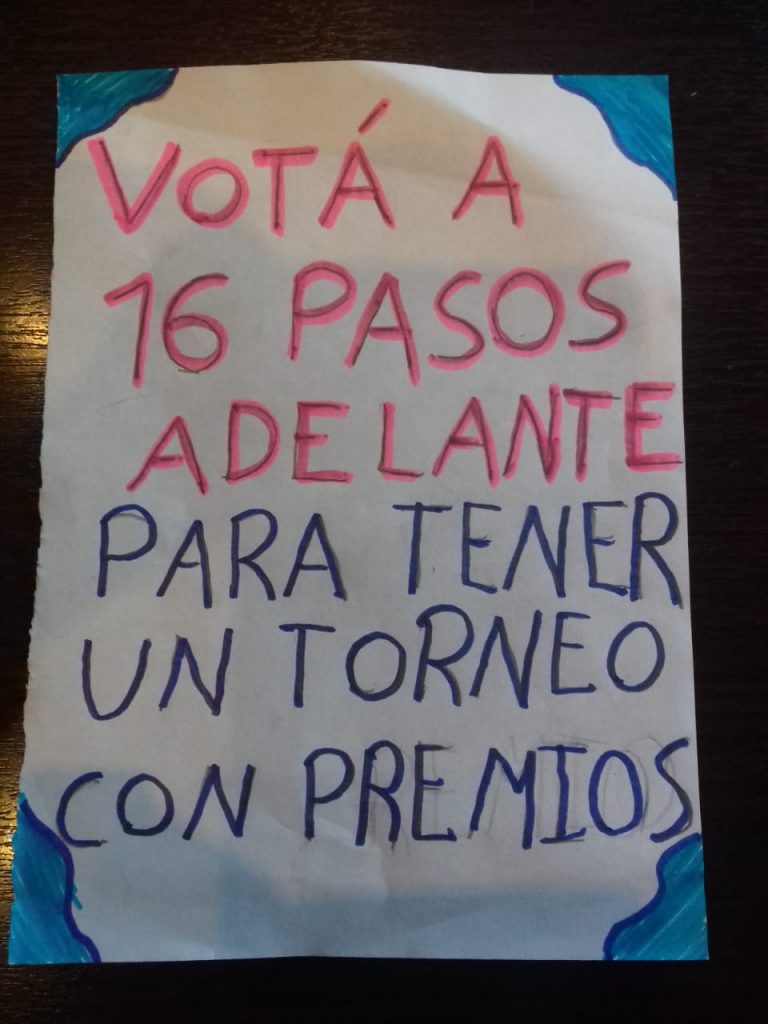 VOTÁ A
16 PASOS
ADELANTE
PARA TENER
UN TORNEO
CON PREMIOS